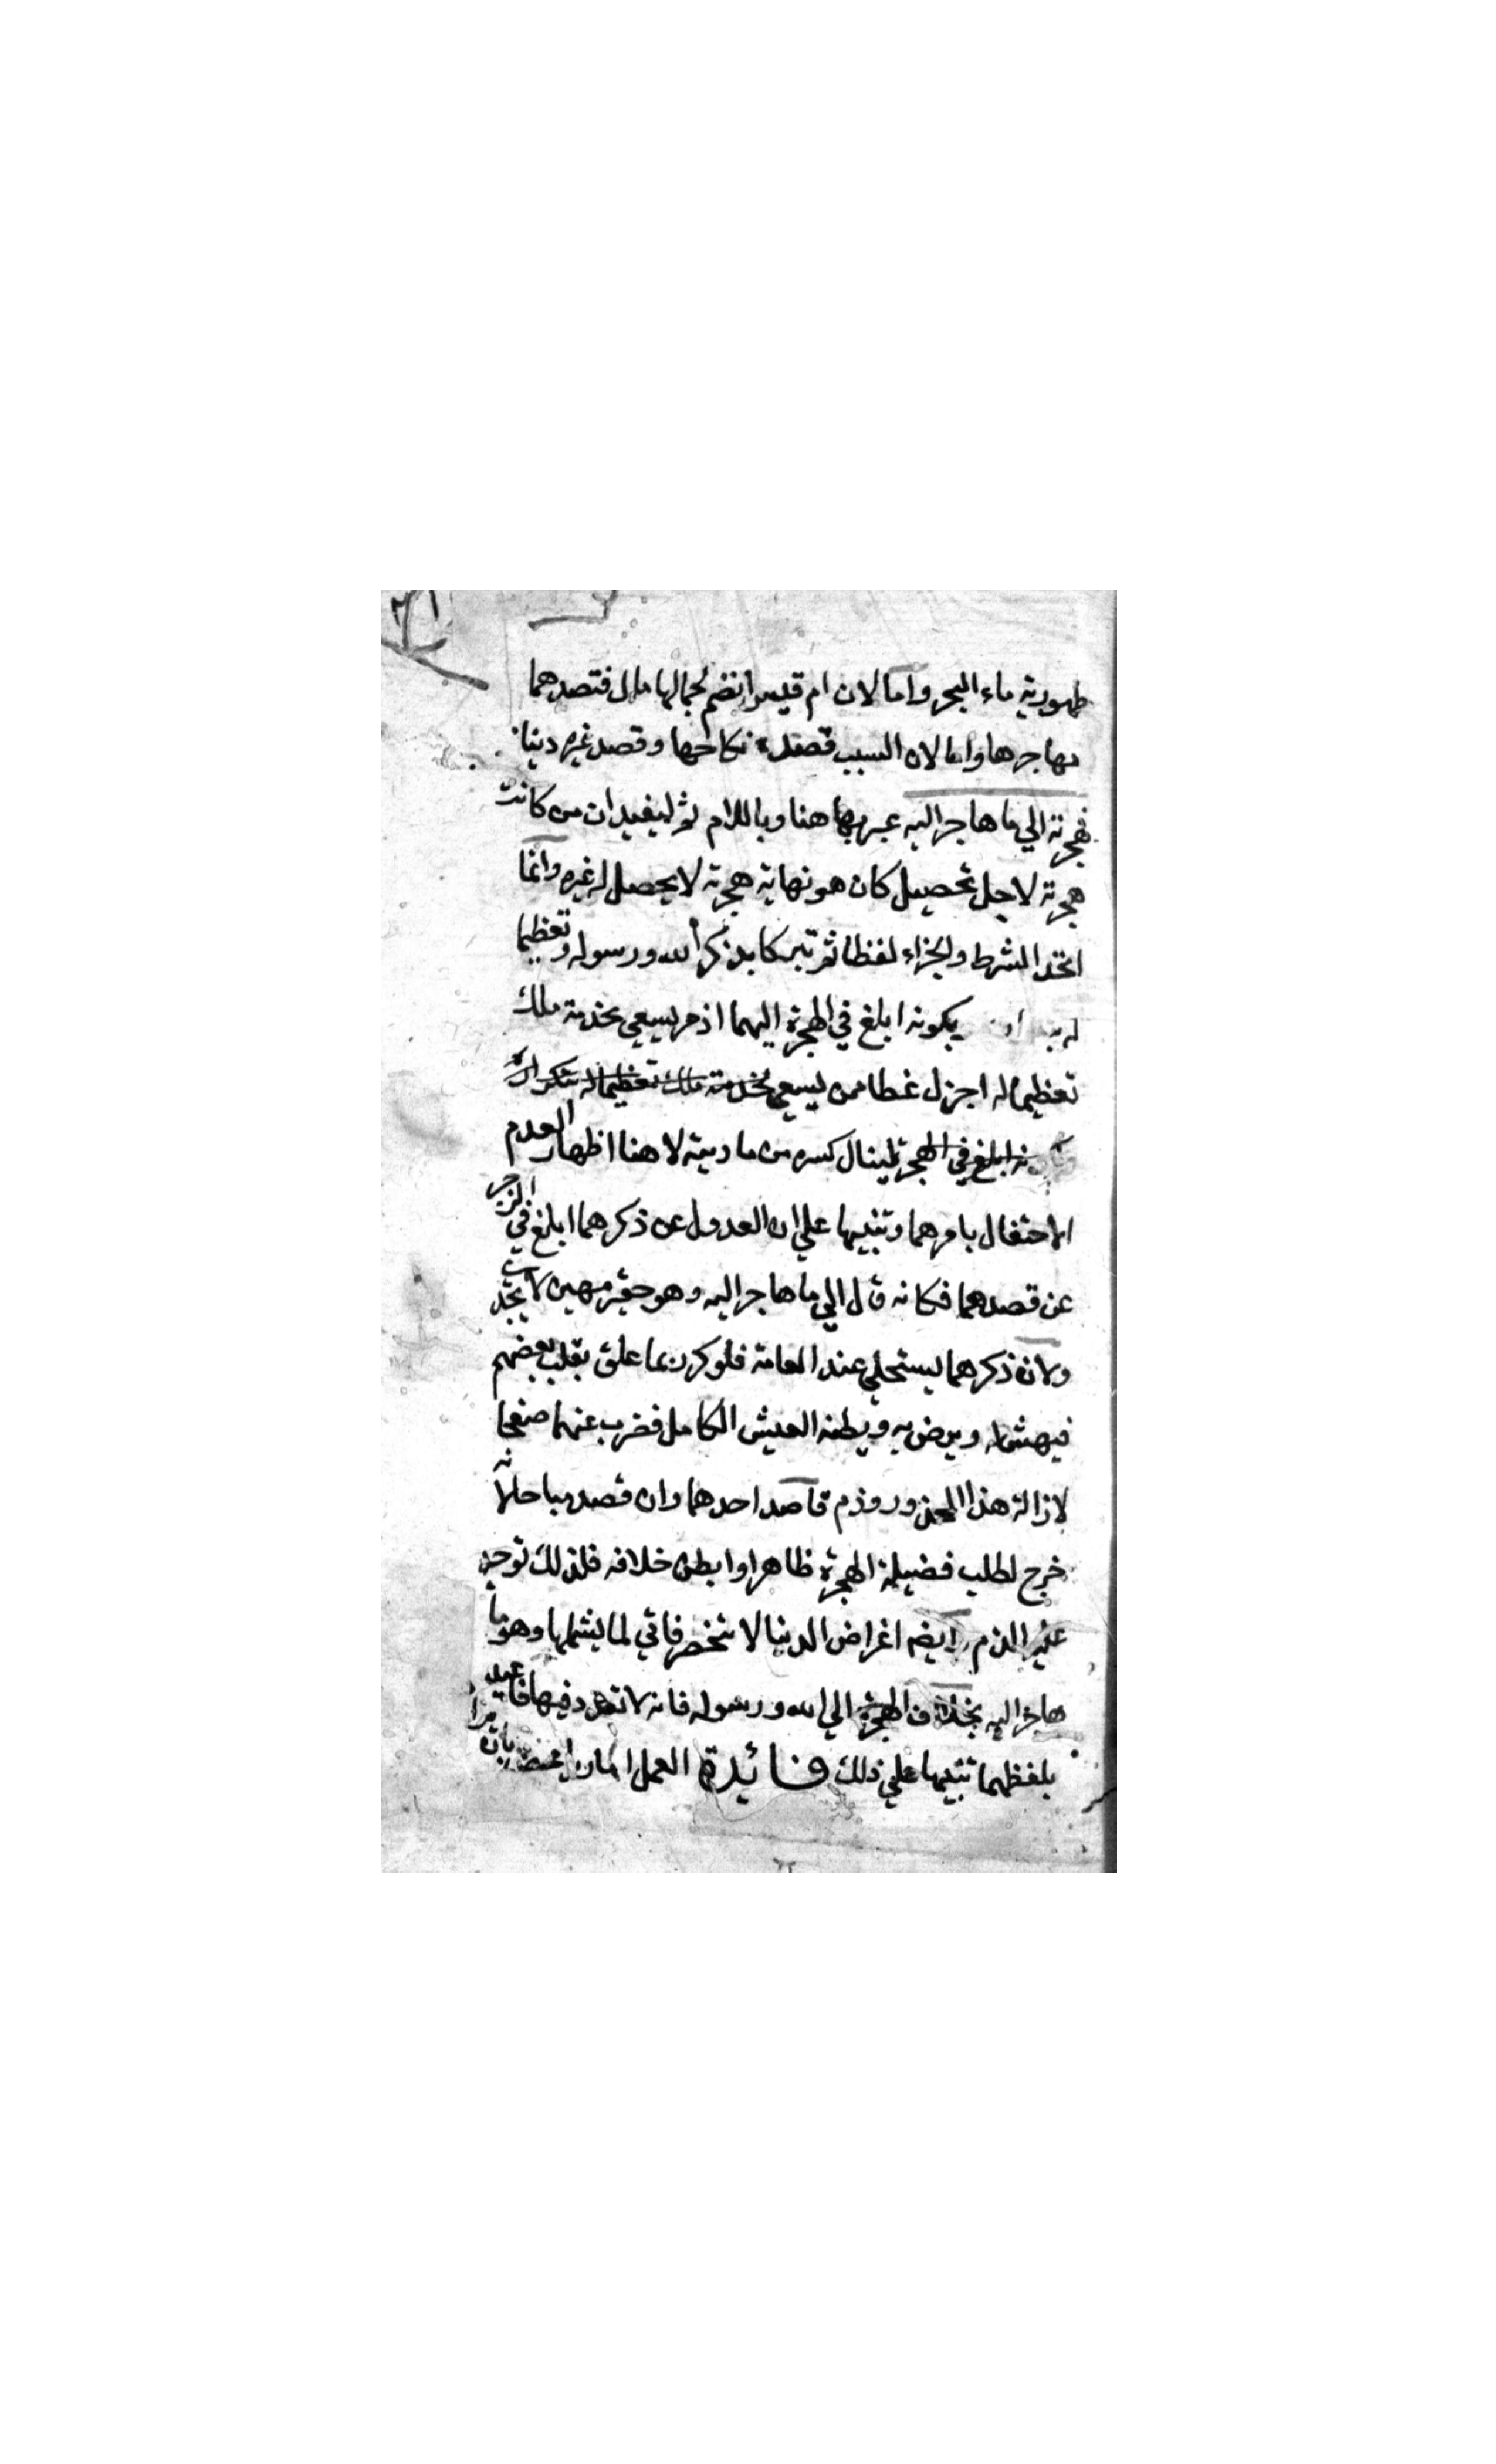 طهورية ماء البحر واما لان ام قيس انضم لجمالها مال فقصدهما
مهاجرها واما لان السبب قصد نكاحها وقصد غيره دينا
فهجرته الي ما هاجر اليه عبر بها هنا وباللام ثم ليفيد ان من كانت
هجرته لاجل تحصيل كان هو نهاية هجرته لا يحصل له غيره وانما
اتحد الشرط والجزاء لفظا ثم تبركا بذكر الله ورسوله وتعظيما
يكونه ابلغ في الهجرة اليهما اذ من يسعي بخدمة ملك
تعظيما له اجزل عطا ممن ليسعي لخدمته ملك تعظيما له بتكراره
نه ابلغ في الهجرة لينال كسره من مادبته لا هنا اظهار العدم
الاحتفال بامرهما وتنبيها علي ان العدول عن ذكرهما ابلغ في الزجر
عن قصدهما فكانه قال الي ما هاجر اليه وهو حقير مهين لا يجدي
ولان ذكرهما يستحلي عند العامة فلو كرر ربما علق بقلب بعضهم
فيهش له ويرضي به ويظنه العيش الكامل فضرب عنهما صفحا
لازالة هذا المحذور وذم قاصد احدهما وان قصد مباحا لانه
خرج لطلب فضيلة الهجرة ظاهرا وابطن خلافه فلذلك توجه
عليه الذم وايضا اغراض الدنيا لا تنحصر فاتي لما يشملها وهو ما
هاجر اليه بخلاف الهجرة الي الله ورسوله فانه لا تعدد فيها فاعيد
بلفظهما تنبيها علي ذلك فائدة العمل